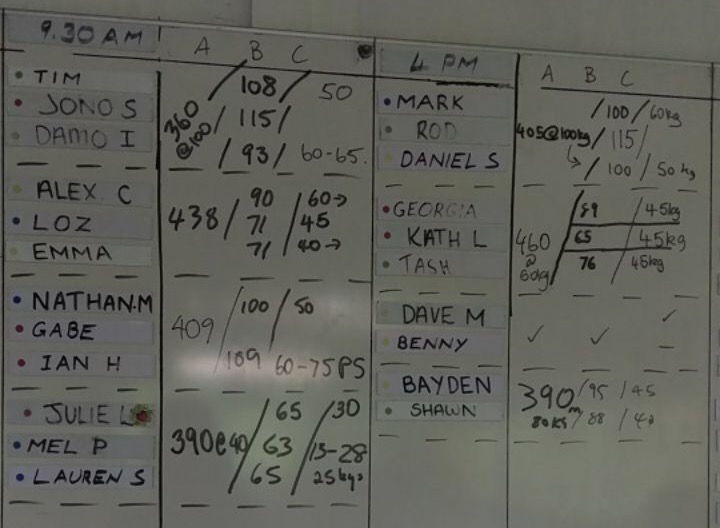 9.30 AM
A B C
TIM / 108 / 50
JONO S 360 @100 / 115 /
DAMO I / 93 / 60-65.
ALEX C 90 60→
LOZ 438 / 71 / 45
EMMA 71 40→
NATHAN.M 100 / 50
GABE 409 /
IAN H 109 60-75PS
JULIE L 65 / 30
MEL P 390@40 / 63 / 15-28
LAUREN S 65 25kgs
4 PM
A B C
MARK / 100 / 60kg
ROD 405@100kg / 115 /
DANIEL S / 100 / 50 kg
GEORGIA 59 / 45kg
KATH L 460 @ 60kg 65 / 45kg
TASH 76 / 45kg
DAVE M ✓ ✓ ✓
BENNY –
BAYDEN 390m / 95 / 45
SHAWN 80KG / 88 /